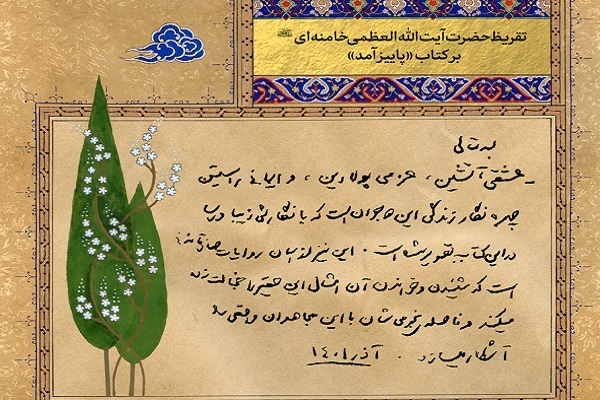 تقریظ حضرت آیت الله العظمی خامنه‌ای
بر کتاب «پاییز آمد»
بسمه تعالی
عشقی آتشین، عزمی پولادین، و ایمانی راستین
چهره نگار زندگی این دو جوان است که با نگارشی زیبا و رسا
در این کتاب به تصویر شده است. این نیز از آن روایات
است که شنیدن و خواندن آن امثال این حقیر را خجالت زده
میکند و فاصله‌ی نجومی شان با این مجاهدان واقعی را
آشکار میسازد. آذر ۱۴۰۱